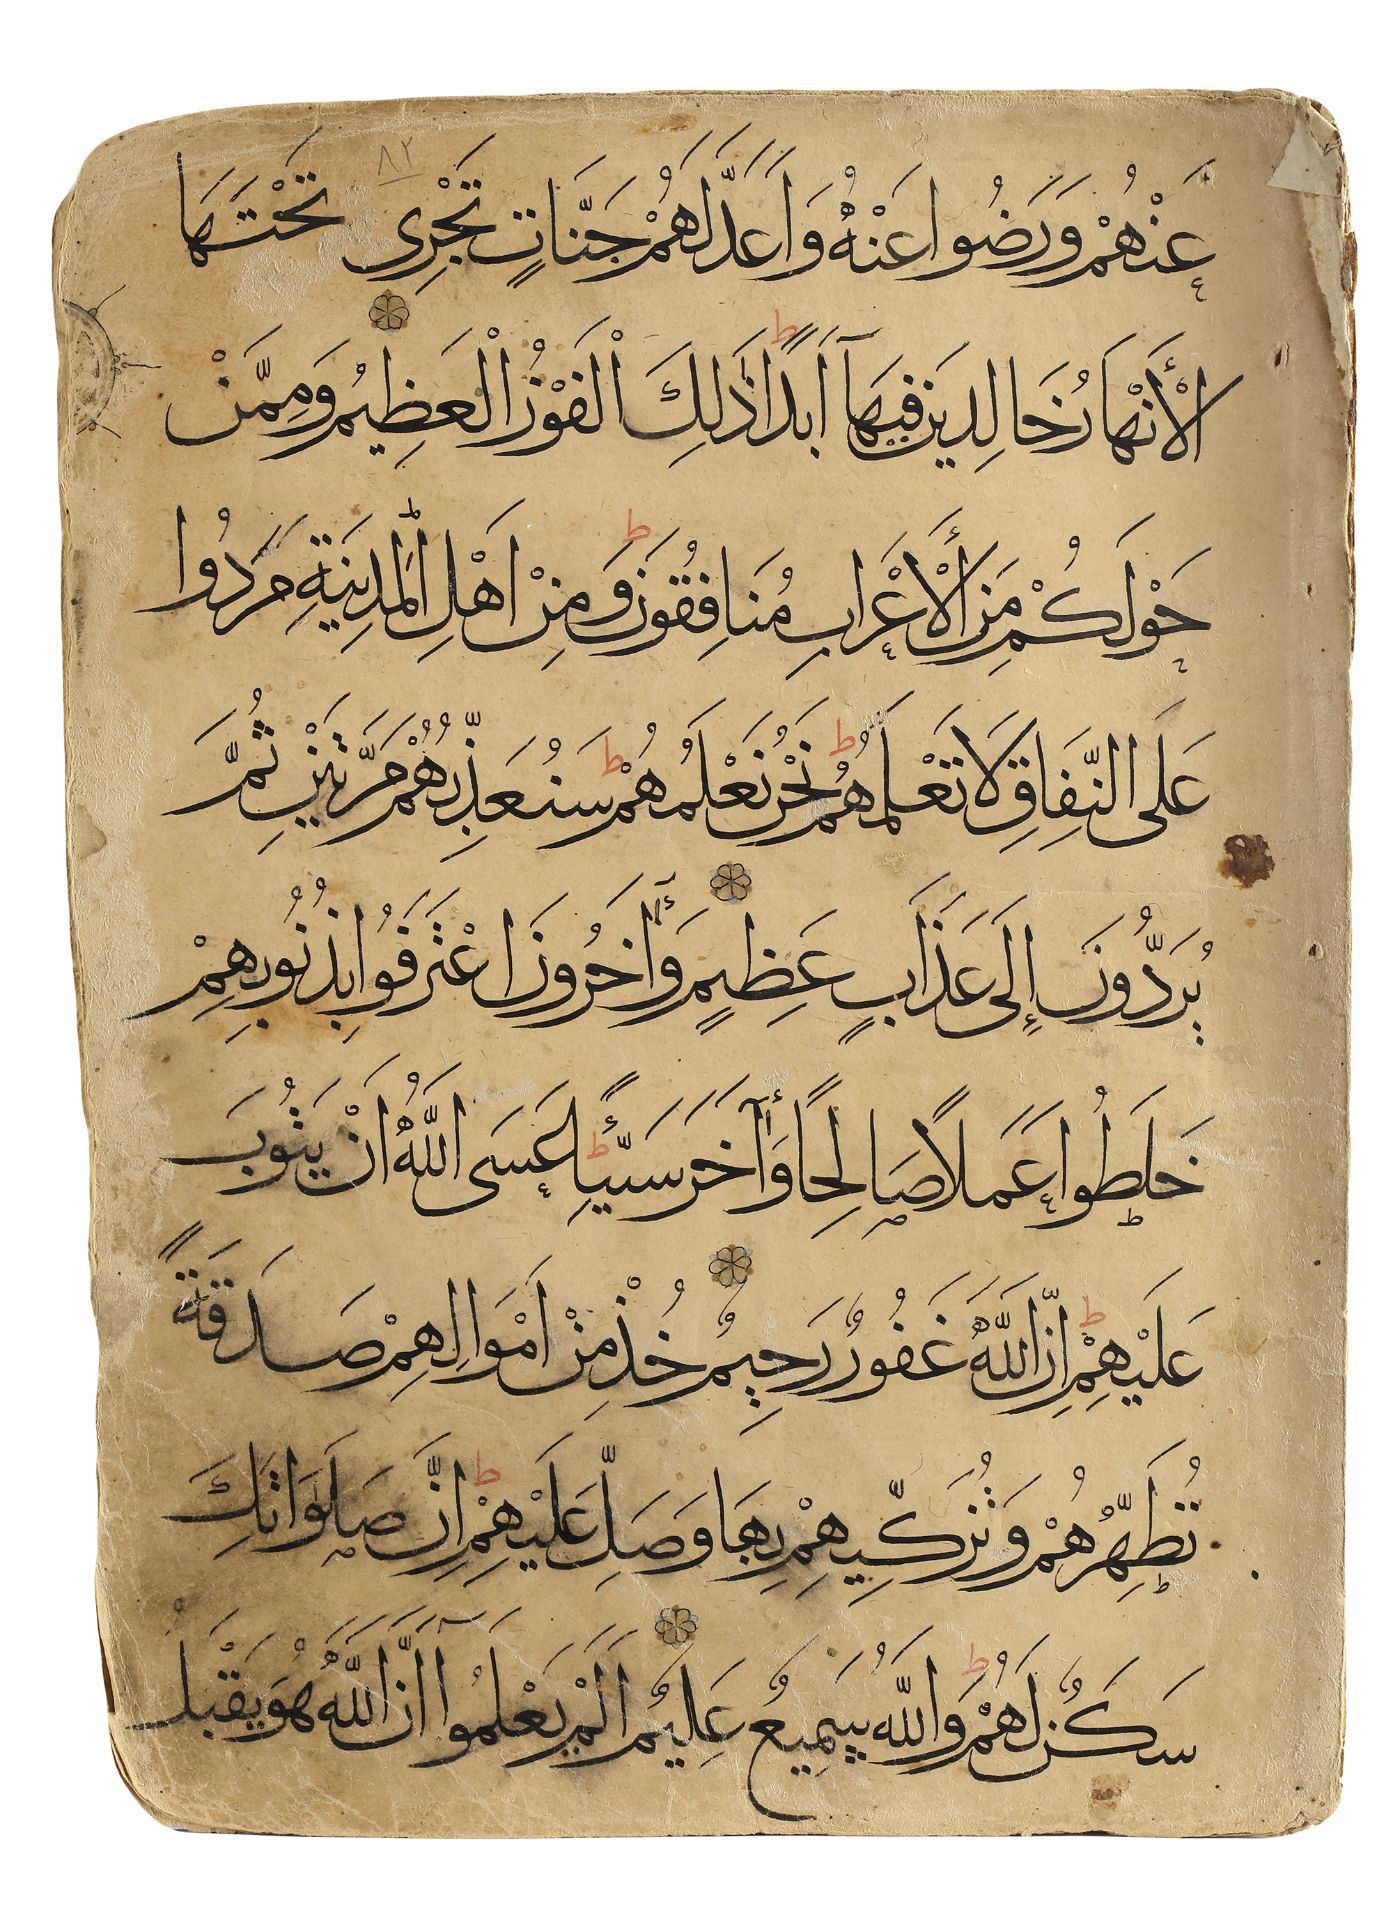 ٨٢
عَنْهُمْ وَرَضُوا عَنْهُ وَاَعَدَّ لَهُمْ جَنَّاتٍ تَجْرِى تَحْتَهَا
الْأَنْهَارُ خَالِدِينَ فِيهَآ اَبَدًا ذَٰلِكَ الْفَوْزُ الْعَظِيمُ وَمِمَّنْ
حَوْلَكُمْ مِنَ الْأَعْرَابِ مُنَافِقُونَ وَمِنْ اَهْلِ الْمَدِينَةِ مَرَدُوا
عَلَى النِّفَاقِ لَا تَعْلَمُهُمْ نَحْنُ نَعْلَمُهُمْ سَنُعَذِّبُهُمْ مَرَّتَيْنِ ثُمَّ
يُرَدُّونَ إِلَى عَذَابٍ عَظِيمٍ وَأٰخَرُونَ اعْتَرَفُوا بِذُنُوبِهِمْ
خَلَطُوا عَمَلًا صَالِحًا وَأٰخَرَ سَيِّئًا عَسَى اللَّهُ اَنْ يَتُوبَ
عَلَيْهِمْ اِنَّ اللَّهَ غَفُورٌ رَحِيمٌ خُذْ مِنْ اَمْوَالِهِمْ صَدَقَةً
تُطَهِّرُهُمْ وَتُزَكِّيهِمْ بِهَا وَصَلِّ عَلَيْهِمْ اِنَّ صَلَوَاتِكَ
سَكَنٌ لَهُمْ وَاللَّهُ سَمِيعٌ عَلِيمٌ اَلَمْ يَعْلَمُوآ اَنَّ اللَّهَ هُوَ يَقْبَلُ